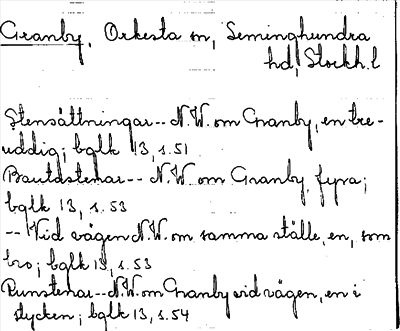 Granby, Orkesta sn, Seminghundra
hd, Stockh.l
Stensättningar -- N.W. om Granby, en tre-
uddig; bglk 13, s.51
Bautastenar -- N.W. om Granby, fyra;
bglk 13, s.53
-- Vid vägen N.W. om samma ställe, en, som
bro; bglk 13, s.53
Runstenar -- N.W. om Granby vid vägen, en i
stycken; bglk 13, s.54